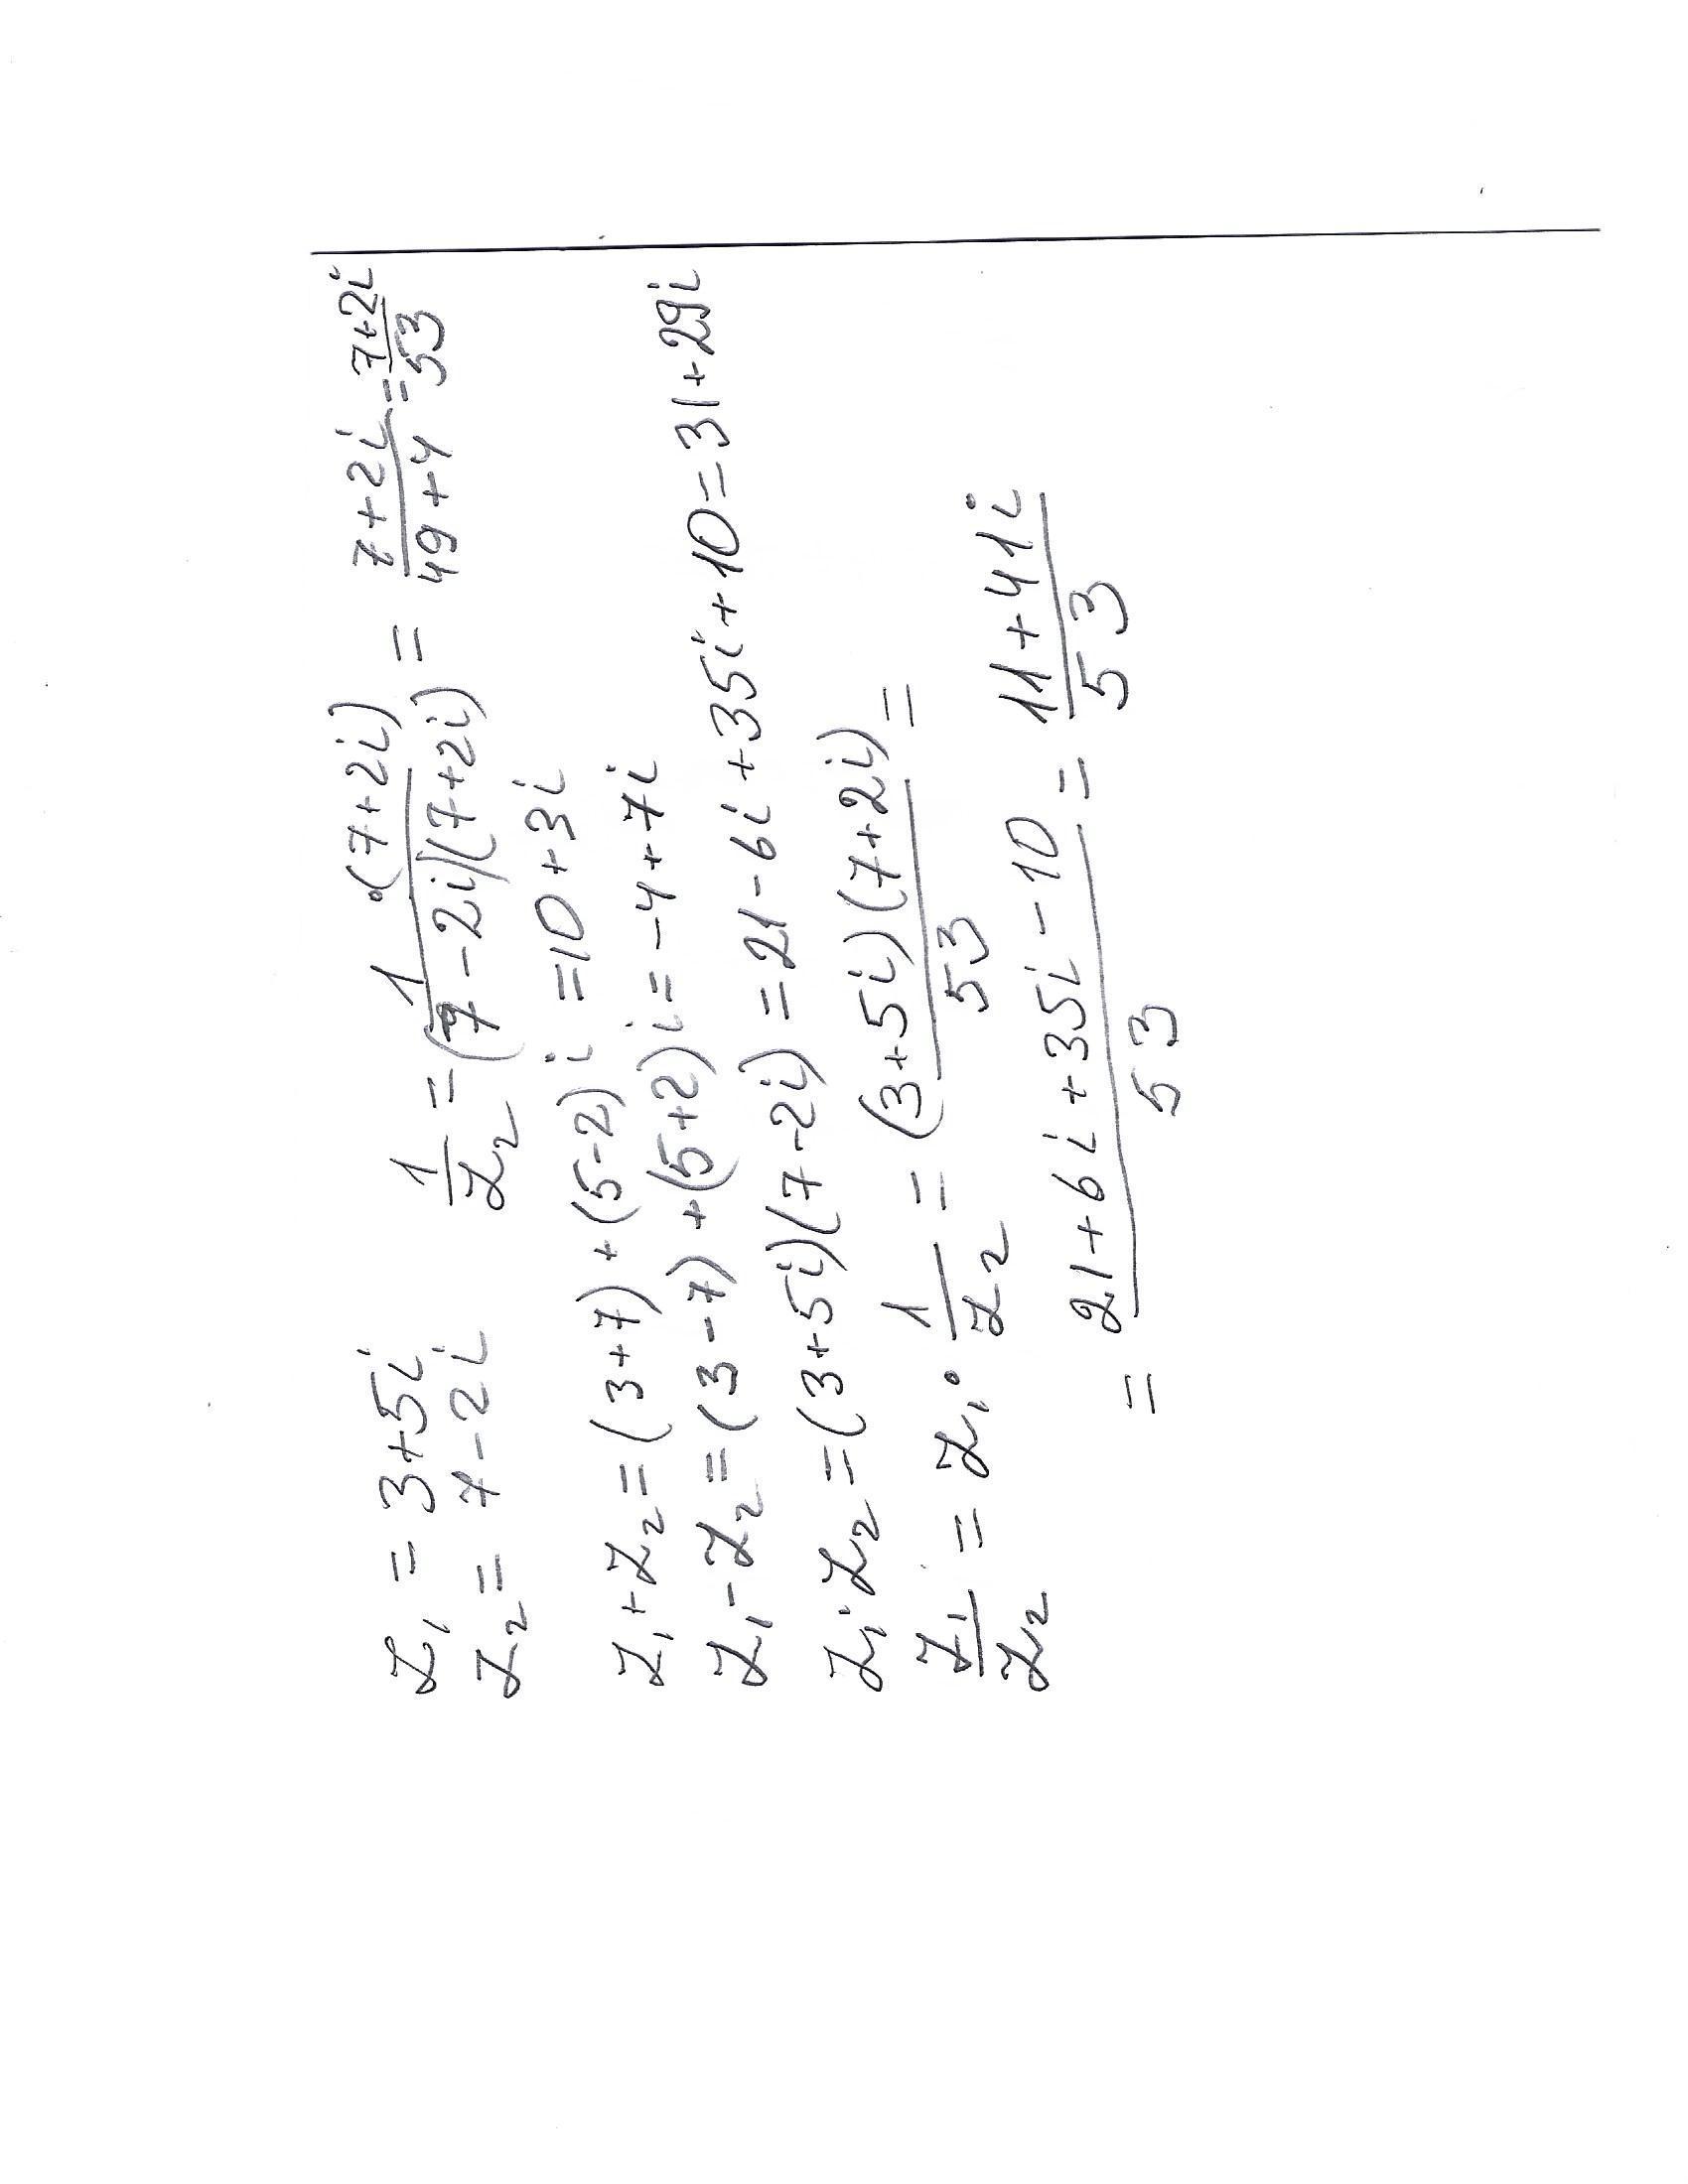 z₁ = 3+5i    1/z₂ = 1·(7+2i)/(7-2i)(7+2i) = 7+2i/49+4 = 7+2i/53
z₂ = 7-2i
z₁+z₂ = (3+7)+(5-2)i = 10+3i
z₁-z₂ = (3-7)+(5+2)i = -4+7i
z₁·z₂ = (3+5i)(7-2i) = 21-6i+35i+10 = 31+29i
z₁/z₂ = z₁·1/z₂ = (3+5i)(7+2i)/53 =
= 21+6i+35i-10/53 = 11+41i/53